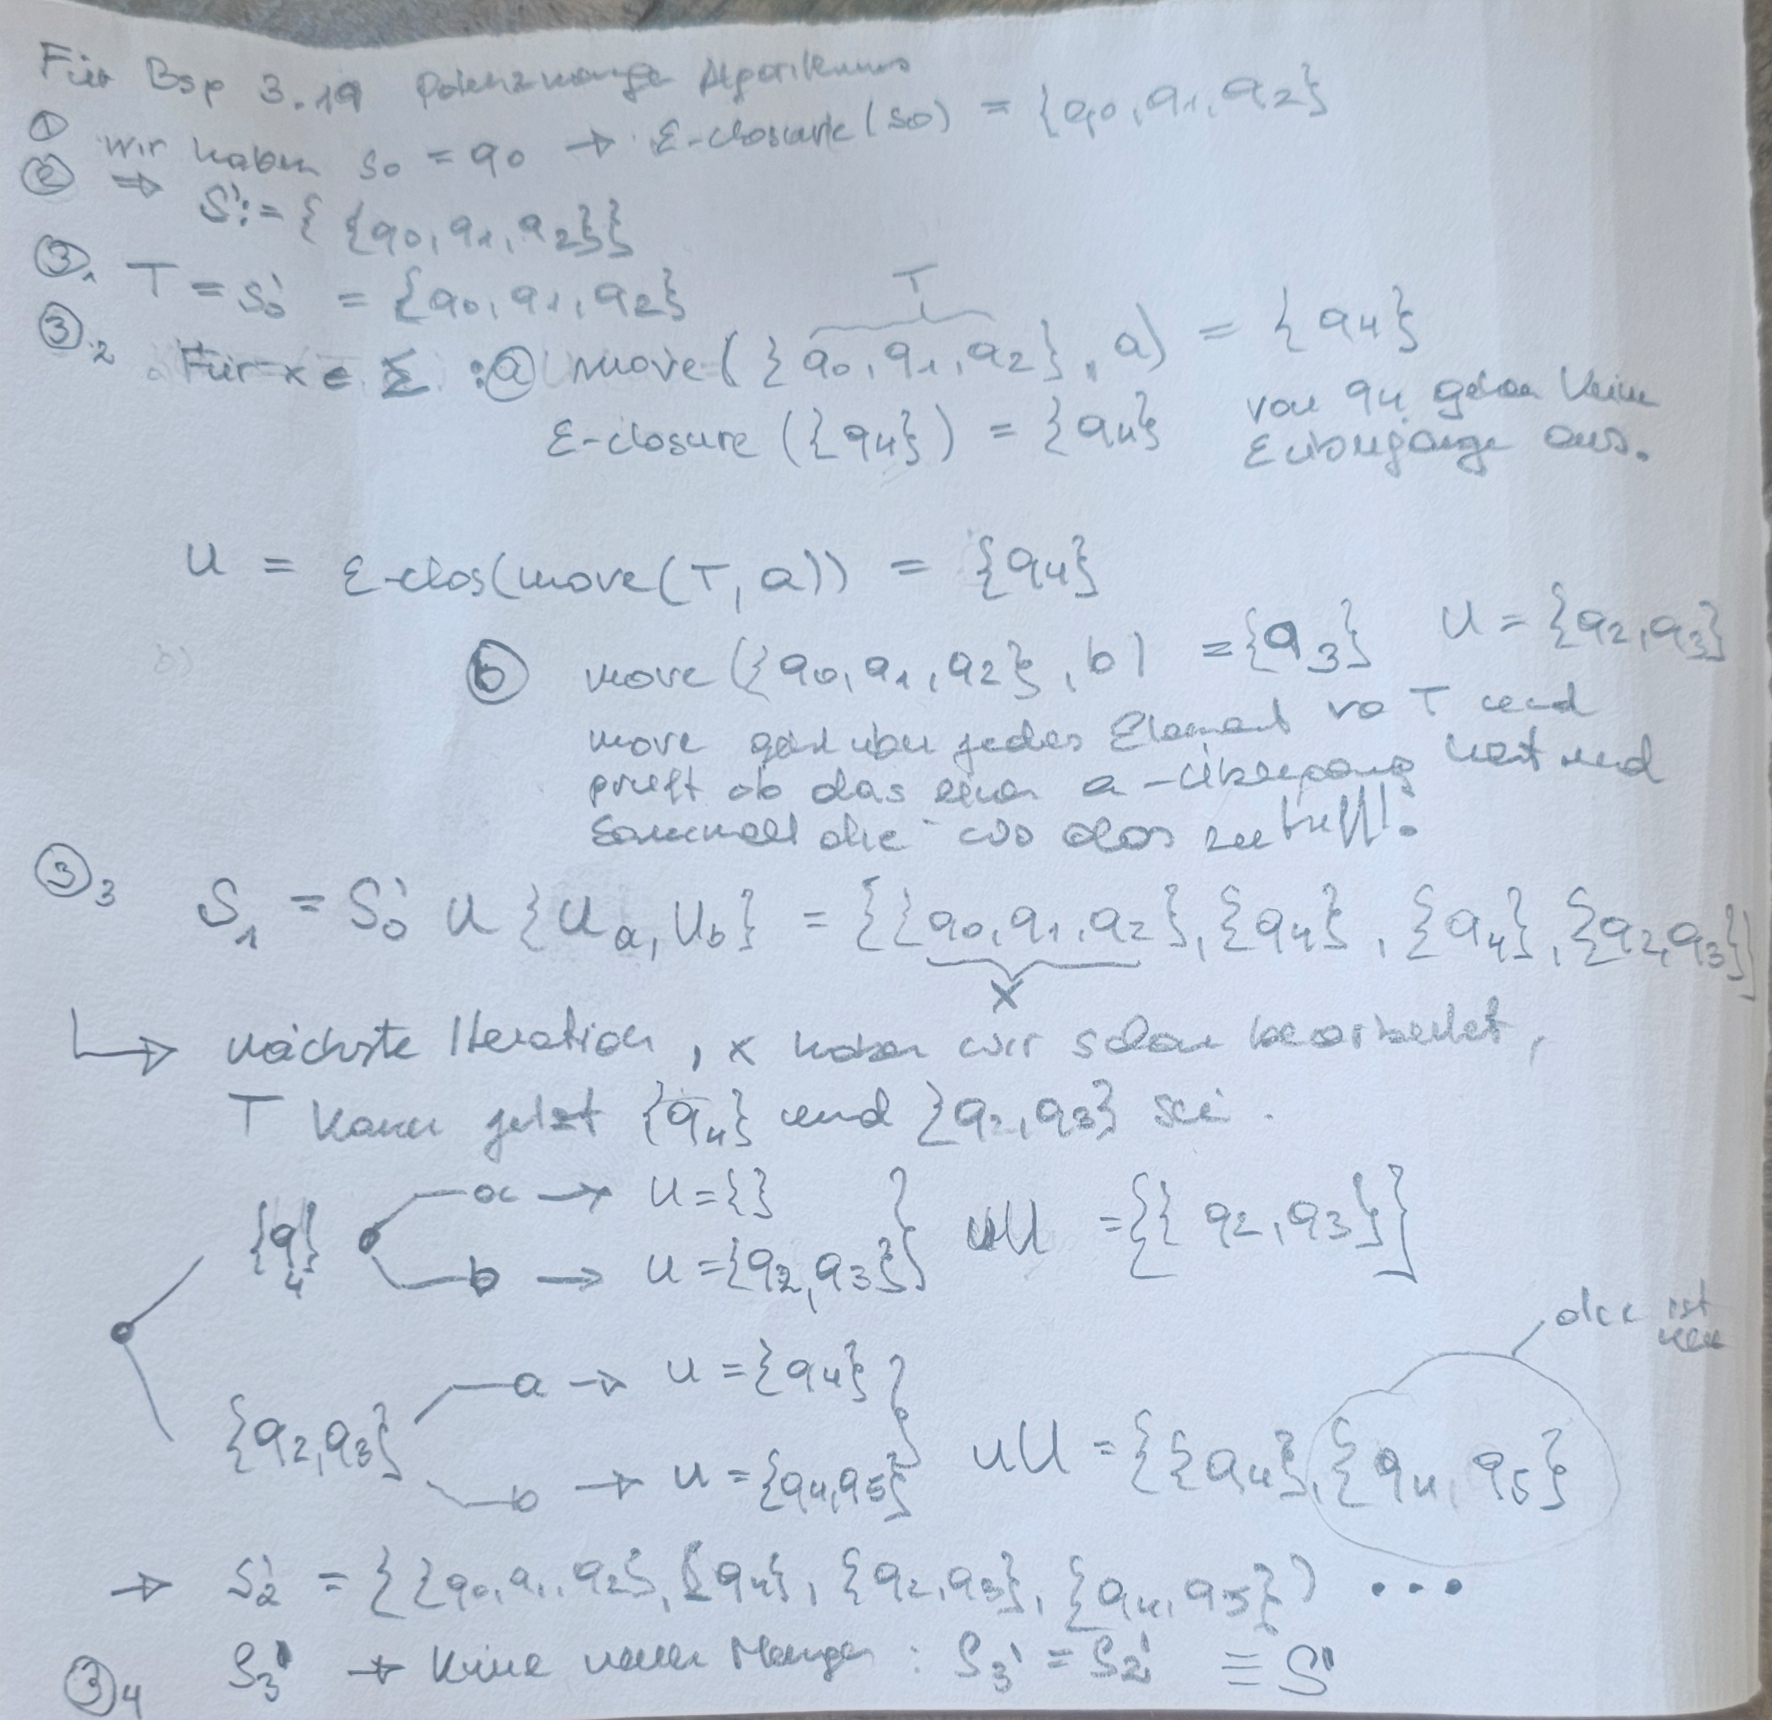 Für Bsp 3.19 Potenzmenge Algorithmus
① wir haben s₀ = q₀ → ε-closure(s₀) = {q₀, q₁, q₂}
② ⇒ S' := { {q₀, q₁, q₂}}
③.₁ T = S₀' = {q₀, q₁, q₂}
T
③.₂ Für x ∈ Σ : ⓐ move({q₀, q₁, q₂}, a) = {q₄}
ε-closure({q₄}) = {q₄} von q₄ gehen keine
ε übergänge aus.
U = ε-clos(move(T, a)) = {q₄}
b) ⓑ move({q₀, q₁, q₂}, b) = {q₃} U = {q₂, q₃}
move geht über jedes Element vo T und
prüft ob das einen a-Übergang hat und
sammelt die wo das zutrifft.
③₃ S₁ = S₀' ∪ {Uₐ, U_b} = {{q₀, q₁, q₂}, {q₄}, {q₄}, {q₂, q₃}}
x
↳ nächste Iteration, x haben wir schon bearbeitet,
T kann jetzt {q₄} und {q₂, q₃} sei.
{q₄} a → U = {}
b → U = {q₂, q₃} } ∪U = {{q₂, q₃}}
die ist
neu
{q₂, q₃} a → U = {q₄}
b → U = {q₄, q₅} } ∪U = {{q₄}, {q₄, q₅}
→ S₂' = {{q₀, q₁, q₂}, {q₄}, {q₂, q₃}, {q₄, q₅}} ...
③₄ S₃' → keine neuen Mengen : S₃' = S₂' ≡ S'